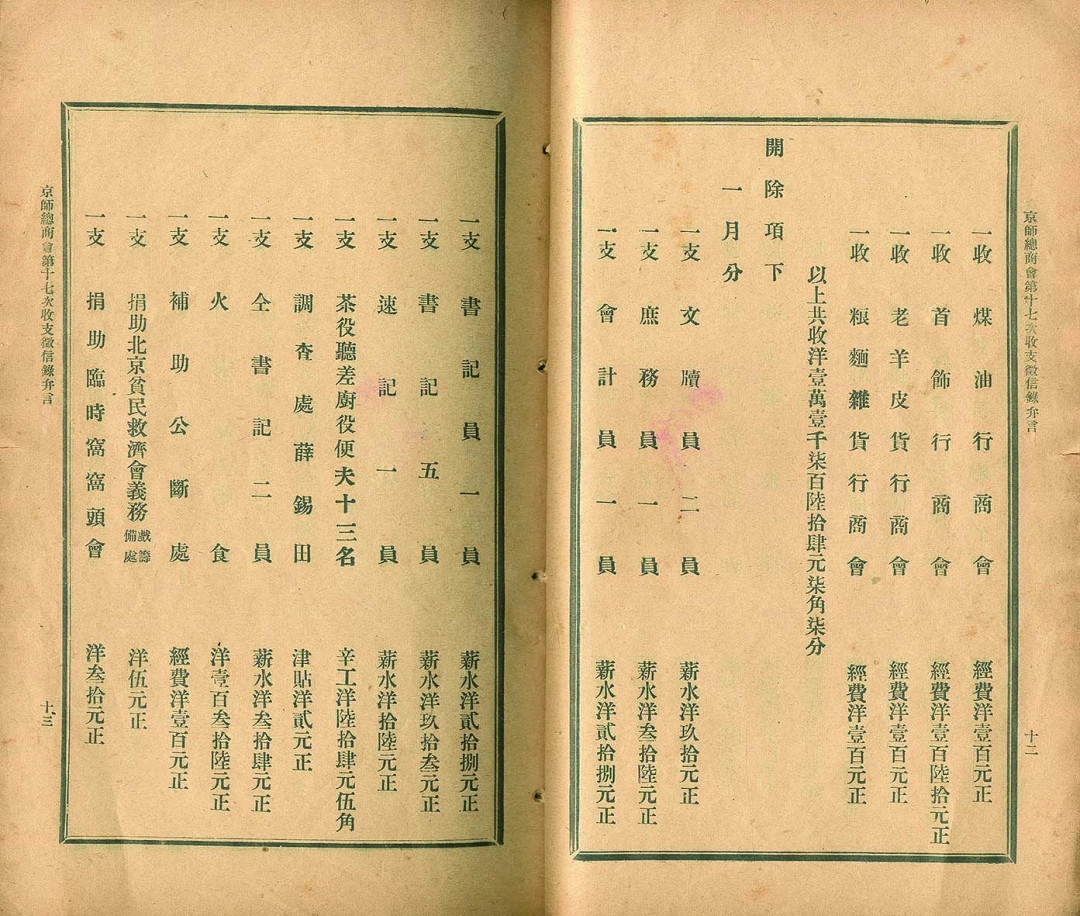 京師總商會第十七次收支徵信錄弁言
十二
一收 煤油行商會 經費洋壹百元正
一收 首飾行商會 經費洋壹百陸拾元正
一收 老羊皮貨行商會 經費洋壹百元正
一收 粮麵雜貨行商會 經費洋壹百元正
以上共收洋壹萬壹千柒百陸拾肆元柒角柒分
開除項下
一月分
一支 文牘員二員 薪水洋玖拾元正
一支 庶務員一員 薪水洋叁拾陸元正
一支 會計員一員 薪水洋貳拾捌元正
一支 書記員一員 薪水洋貳拾捌元正
一支 書記五員 薪水洋玖拾叁元正
一支 速記一員 薪水洋拾陸元正
一支 茶役聽差廚役便夫十三名 辛工洋陸拾肆元伍角
一支 調查處薛錫田 津貼洋貳元正
一支 仝書記二員 薪水洋叁拾肆元正
一支 火食 洋壹百叁拾陸元正
一支 補助公斷處 經費洋壹百元正
一支 捐助北京貧民救濟會義務戲籌備處 洋伍元正
一支 捐助臨時窩窩頭會 洋叁拾元正
京師總商會第十七次收支徵信錄弁言
十三